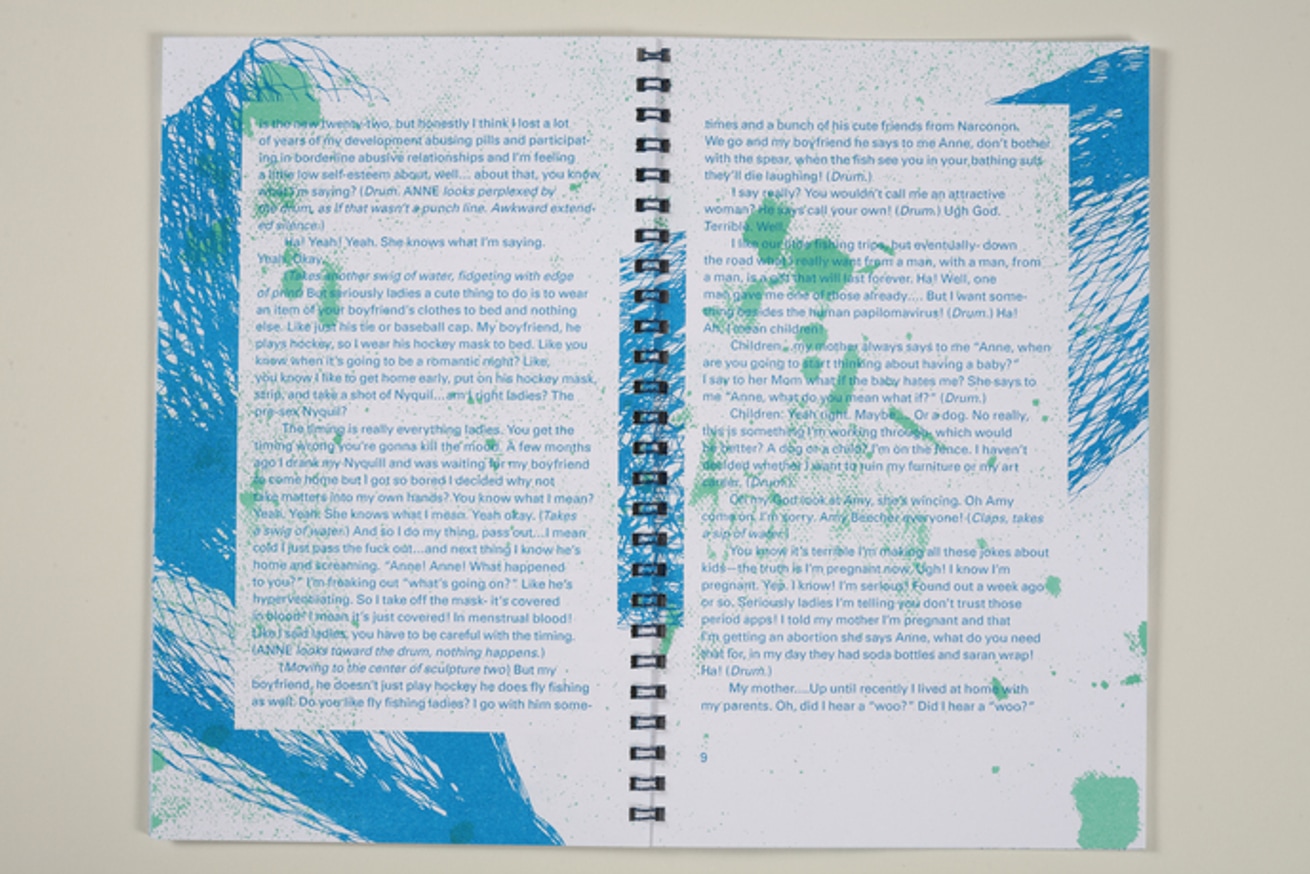 is the new twenty-two, but honestly I think I lost a lot
of years of my development abusing pills and participat-
ing in borderline abusive relationships and I'm feeling
a little low self-esteem about, well... about that, you know
what I'm saying? (Drum. ANNE looks perplexed by
the drum, as if that wasn't a punch line. Awkward extend-
ed silence.)
Ha! Yeah! Yeah. She knows what I'm saying.
Yeah. Okay.
(Takes another swig of water, fidgeting with edge
of But seriously ladies a cute thing to do is to wear
an item of your boyfriend's clothes to bed and nothing
else. Like just his tie or baseball cap. My boyfriend, he
plays hockey, so I wear his hockey mask to bed. Like you
know when it's going to be a romantic night? Like,
you know I like to get home early, put on his hockey mask,
strip, and take a shot of Nyquil... am I right ladies? The
pre-sex Nyquil?
The timing is really everything ladies. You get the
timing wrong you're gonna kill the mood. A few months
ago I drank my Nyquill and was waiting for my boyfriend
to come home but I got so bored I decided why not
take matters into my own hands? You know what I mean?
Yeah. Yeah. She knows what I mean. Yeah okay. (Takes
a swig of water.) And so I do my thing, pass out...I mean
cold I just pass the fuck out...and next thing I know he's
home and screaming. "Anne! Anne! What happened
to you?" I'm freaking out "what's going on?" Like he's
hyperventilating. So I take off the mask- it's covered
in blood! I mean it's just covered! In menstrual blood!
Like I said ladies, you have to be careful with the timing.
(ANNE looks toward the drum, nothing happens.)
(Moving to the center of sculpture two) But my
boyfriend, he doesn't just play hockey he does fly fishing
as well. Do you like fly fishing ladies? I go with him some-
times and a bunch of his cute friends from Narconon.
We go and my boyfriend he says to me Anne, don't bother
with the spear, when the fish see you in your bathing suit
they'll die laughing! (Drum.)
I say really? You wouldn't call me an attractive
woman? He says call your own! (Drum.) Ugh God.
Terrible. Well,
I like our little fishing trips, but eventually- down
the road what I really want from a man, with a man, from
a man, is a gift that will last forever. Ha! Well, one
man gave me one of those already.... But I want some-
thing besides the human papilomavirus! (Drum.) Ha!
Ah, I mean children!
Children... my mother always says to me "Anne, when
are you going to start thinking about having a baby?"
I say to her Mom what if the baby hates me? She says to
me "Anne, what do you mean what if?" (Drum.)
Children: Yeah right. Maybe... Or a dog. No really,
this is something I'm working through, which would
be better? A dog or a child? I'm on the fence. I haven't
decided whether I want to ruin my furniture or my art
career. (Drum.)
Oh my God look at Amy, she's wincing. Oh Amy
come on. I'm sorry. Amy Beecher everyone! (Claps, takes
a sip of water.)
You know it's terrible I'm making all these jokes about
kids—the truth is I'm pregnant now. Ugh! I know I'm
pregnant. Yep. I know! I'm serious! Found out a week ago
or so. Seriously ladies I'm telling you don't trust those
period apps! I told my mother I'm pregnant and that
I'm getting an abortion she says Anne, what do you need
that for, in my day they had soda bottles and saran wrap!
Ha! (Drum.)
My mother....Up until recently I lived at home with
my parents. Oh, did I hear a "woo?" Did I hear a "woo?"
9